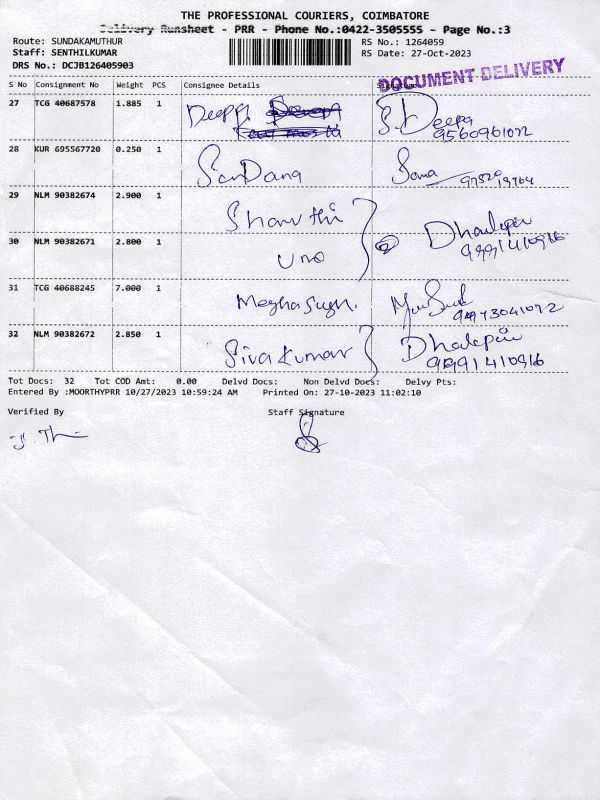 THE PROFESSIONAL COURIERS, COIMBATORE
Delivery Runsheet - PRR - Phone No.:0422-3505555 - Page No.:3
Route: SUNDAKAMUTHUR RS No.: 1264059
Staff: SENTHILKUMAR RS Date: 27-Oct-2023
DRS No.: DCJB126405903
DOCUMENT DELIVERY
S No Consignment No Weight PCS Consignee Details
27 TCG 40687578 1.885 1 Deepa Deepa
9560961072
28 KUR 695567720 0.250 1 SanDana Sana
29 NLM 90382674 2.900 1 Shanthi
30 NLM 90382671 2.800 1 Uno
31 TCG 40688245 7.000 1 Meghasugn.
32 NLM 90382672 2.850 1 Sivakumar
Tot Docs: 32 Tot COD Amt: 0.00 Delvd Docs: Non Delvd Docs: Delvy Pts:
Entered By :MOORTHYPRR 10/27/2023 10:59:24 AM Printed On: 27-10-2023 11:02:10
Verified By Staff Signature